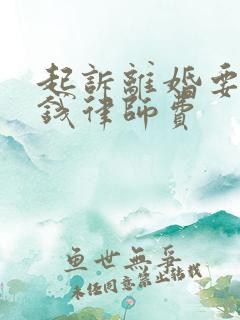 起訴離婚要
錢律師費
魚世無爭
未任同意禁止轉載